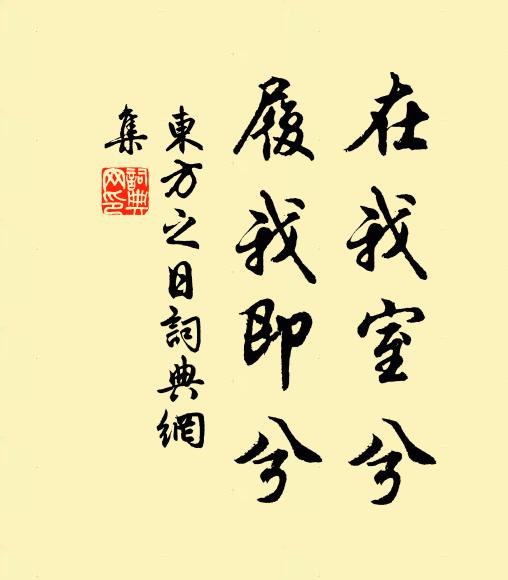 在我室兮
履我即兮
東方之日詞典網
集
詞典
网印